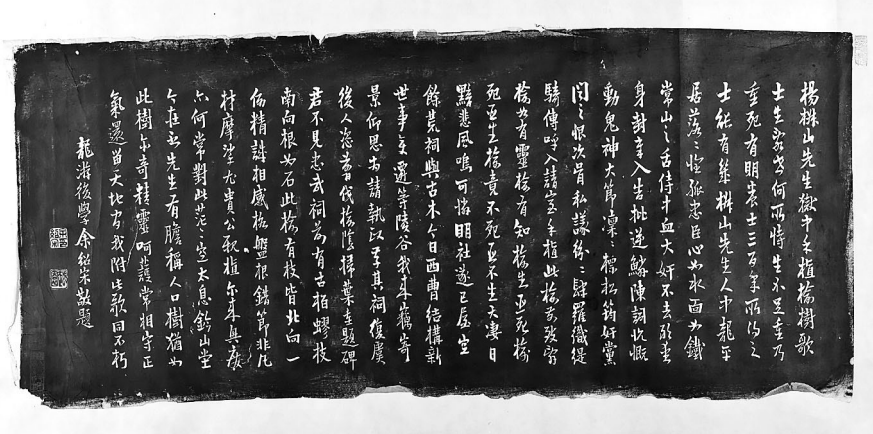 楊椒山先生獄中手植榆樹歌
士生世何所恃生不足重乃
重死有明養士三百年所得之
士能有幾椒山先生人中龍平
居落落惟孤忠臣心如水面如鐵
常山之舌侍中血大奸不去
身封章入告批逆鱗陳詞忼慨
動鬼神大節凜凜標松筠奸黨
聞之恨次骨私議紛紛肆羅織緹
騎傳呼入請室手植此榆
榆如有靈榆有知榆生臣死榆
死臣生榆竟不死臣不生天凄日
黯悲風鳴可憐明社遂已屋空
餘荒祠與古木今日西曹結構新
世事變遷等陵谷我來
景仰思其祠
後人恣翦伐榆陰掃葉坐題碑
君不見忠武祠前有古柏蟉枝
南向根如石此榆有枝皆北向一
倆精誠相感格盤根錯節非凡
材摩挲尤貴公親植爾來興廢
亦何常對此茫茫空太息鈐山堂
今在否先生有膽稱人口樹猶如
此樹亦奇精靈呵護常相守正
氣還留天地間我附此歌同不朽
龍游後學余紹宋敬題